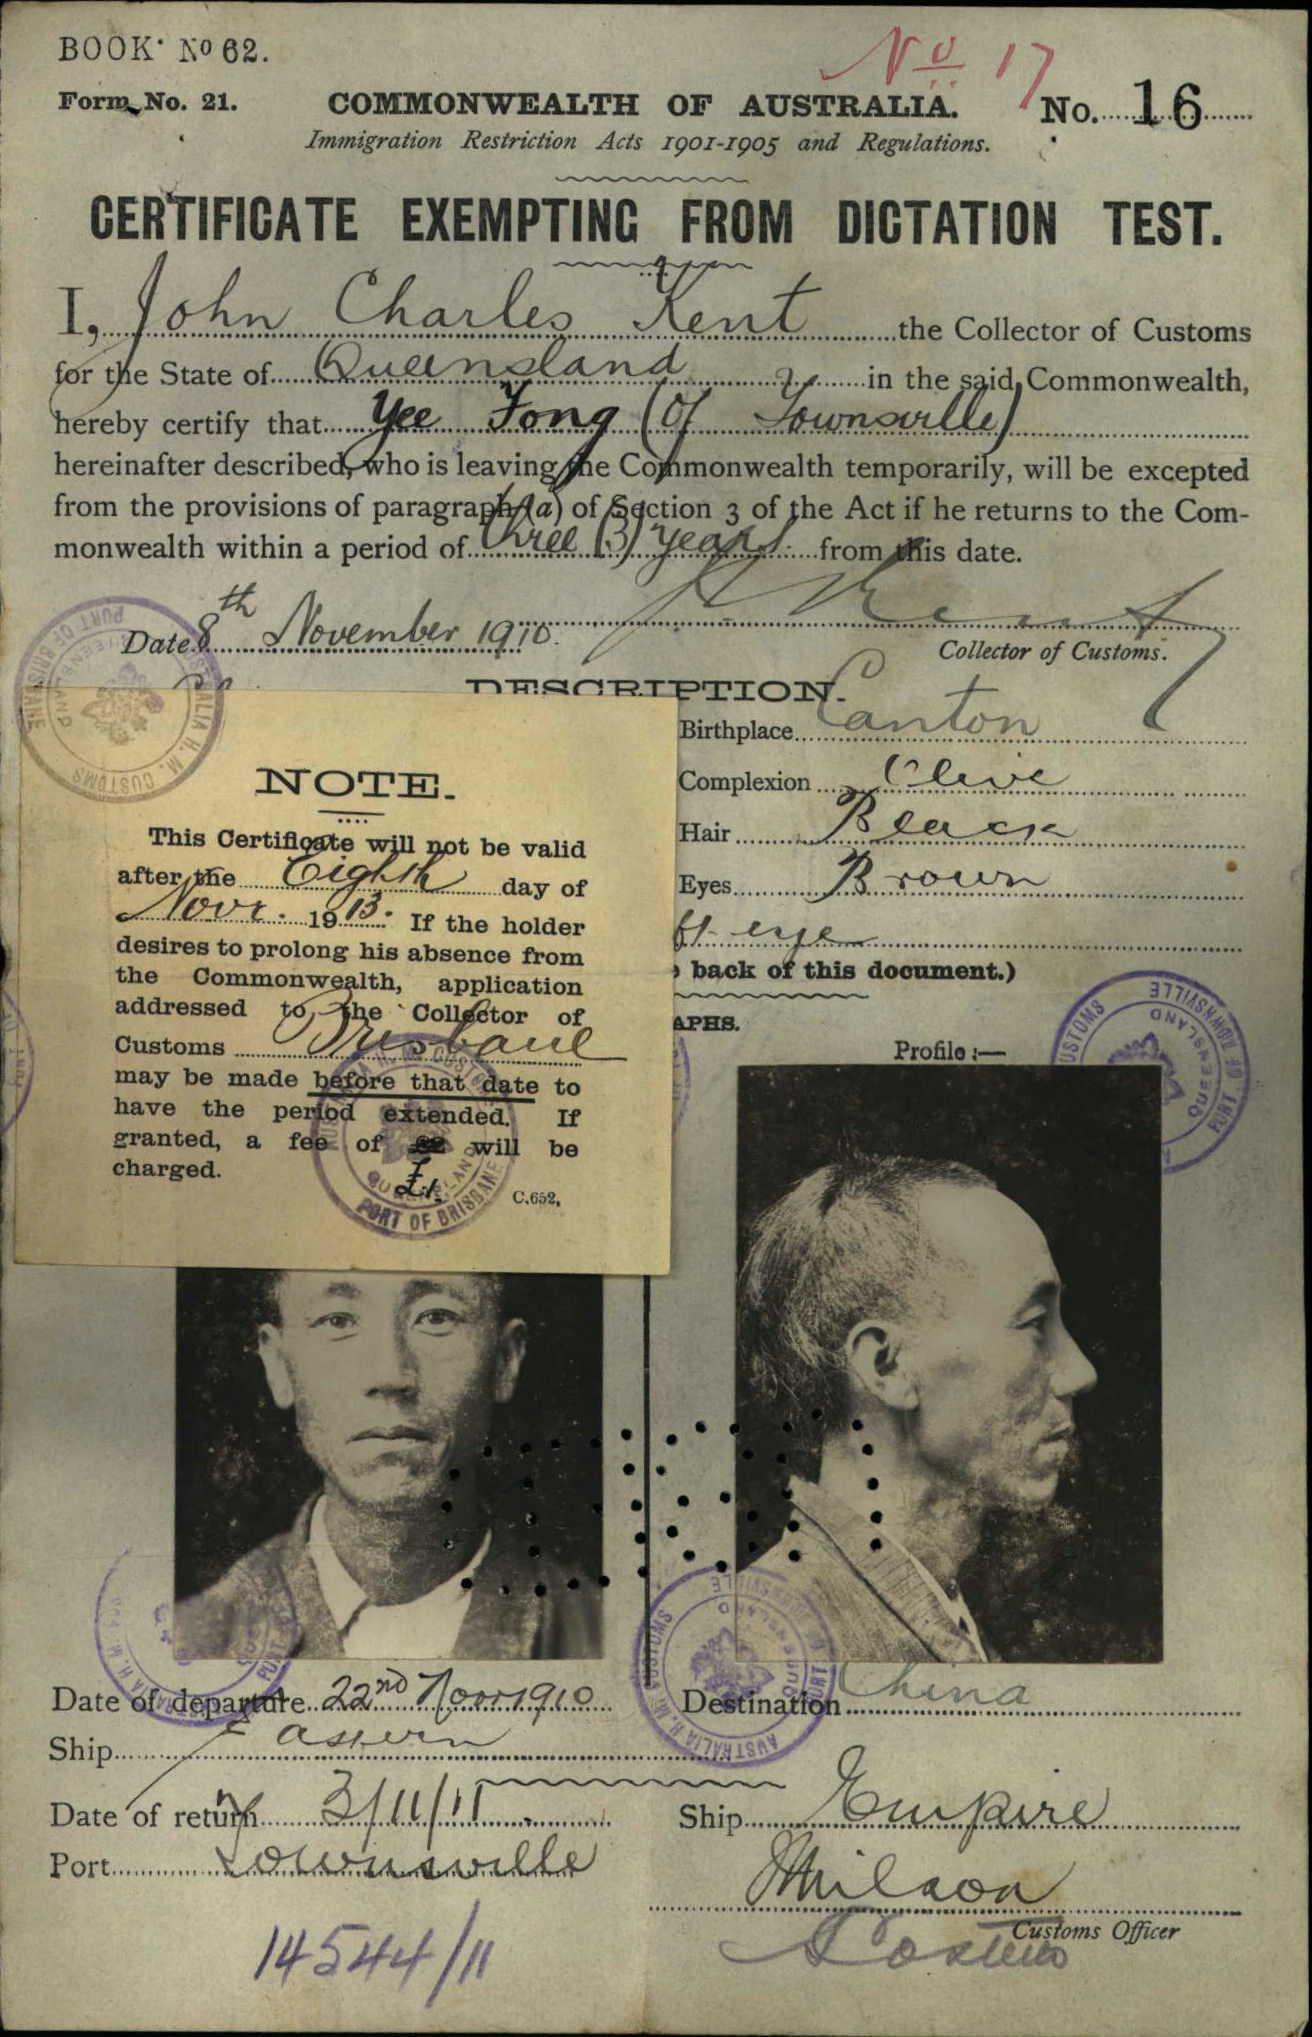 BOOK. No 62.
No 17
Form No. 21.
COMMONWEALTH OF AUSTRALIA.
No. 16
Immigration Restriction Acts 1901-1905 and Regulations.
CERTIFICATE EXEMPTING FROM DICTATION TEST.
I, John Charles Kent the Collector of Customs
for the State of Queensland in the said Commonwealth,
hereby certify that Yee Fong (Of Townsville)
hereinafter described, who is leaving the Commonwealth temporarily, will be excepted
from the provisions of paragraph (a) of Section 3 of the Act if he returns to the Com-
monwealth within a period of three (3) years from this date.
Date 8th November 1910.
Collector of Customs.
DESCRIPTION.
Birthplace Canton
Complexion Olive
Hair Black
Eyes Brown
eye
back of this document.)
APHS.
Profile:—
NOTE.
This Certificate will not be valid
after the Eighth day of
Novr. 1913. If the holder
desires to prolong his absence from
the Commonwealth, application
addressed to the Collector of
Customs Brisbane
may be made before that date to
have the period extended. If
granted, a fee of will be
£1.
charged.
C.652.
PORT OF BRISBANE
AUSTRALIA H. M. CUSTOMS
QUEENSLAND
PORT OF BRISBANE
QUEENSLAND
CUSTOMS
PORT OF TOWNSVILLE
QUEENSLAND
AUSTRALIA H. M. CUSTOMS
PORT OF TOWNSVILLE
QUEENSLAND
Date of departure 22nd Novr 1910
Destination China
Ship Eastern
Date of return 3/11/11
Ship Empire
Port Townsville
Customs Officer
14544/11